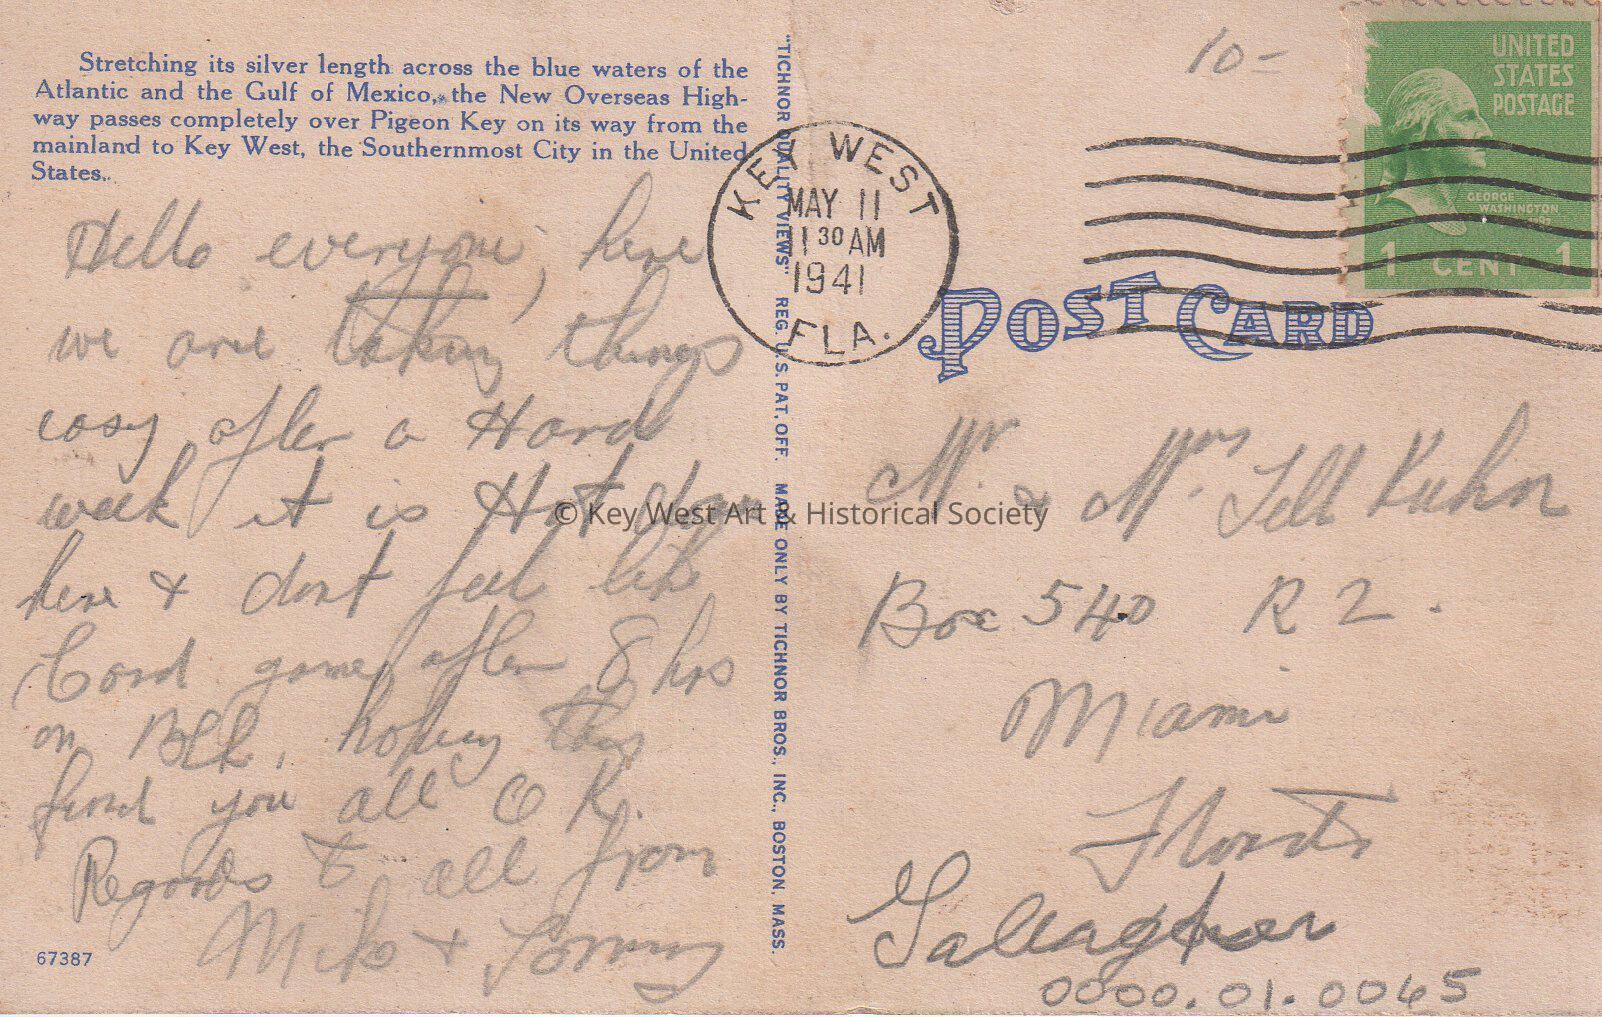 Stretching its silver length across the blue waters of the
Atlantic and the Gulf of Mexico, the New Overseas High-
way passes completely over Pigeon Key on its way from the
mainland to Key West, the Southernmost City in the United
States.
Hello everyone, here
we are taking things
easy after a Hard
week it is Hot down
here & dont feel like
Card game after 8 hrs
on
hoping this
find you all O K.
Regards to all from
Mike & Tommy
67387
"TICHNOR QUALITY VIEWS" REG. U.S. PAT. OFF. MADE ONLY BY TICHNOR BROS., INC., BOSTON, MASS.
KEY WEST
MAY 11
11 30 AM
1941
FLA.
10-
UNITED
STATES
POSTAGE
GEORGE
WASHINGTON
1 CENT 1
POST CARD
Mr. & Mrs Tell Kuhn
Box 540 R 2.
Miami
Florida
© Key West Art & Historical Society
0000.01.0065